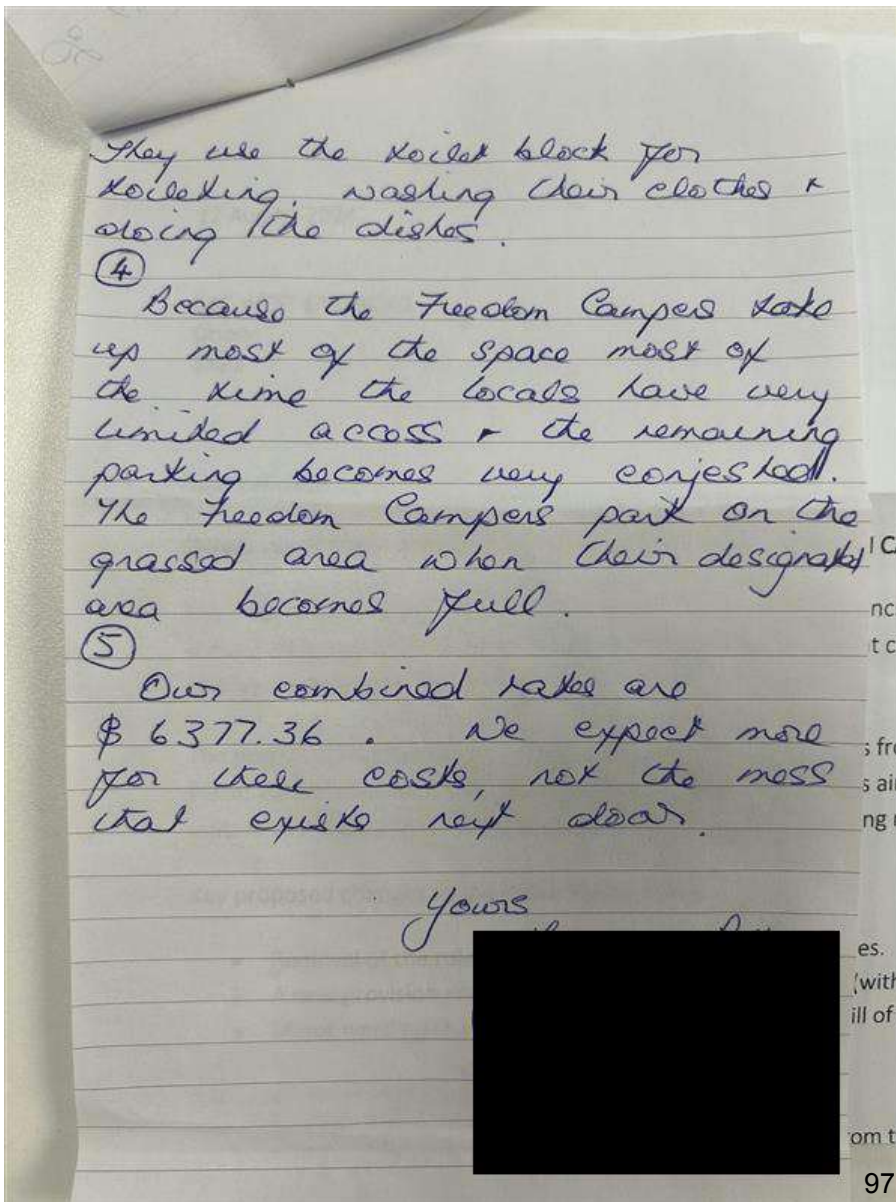 They use the toilet block for
toileting, washing their clothes +
doing the dishes.
4
Because the Freedom Campers take
up most of the space most of
the time the locals have very
limited access + the remaining
parking becomes very conjested.
The Freedom Campers park on the
grassed area when their designated
area becomes full.
5
Our combined rates are
$ 6377.36 . We expect more
for these costs, not the mess
that exists next door.
Yours
l C
nc
t c
s fr
s ai
ng
key proposed
es.
(with
ill of
om t
97